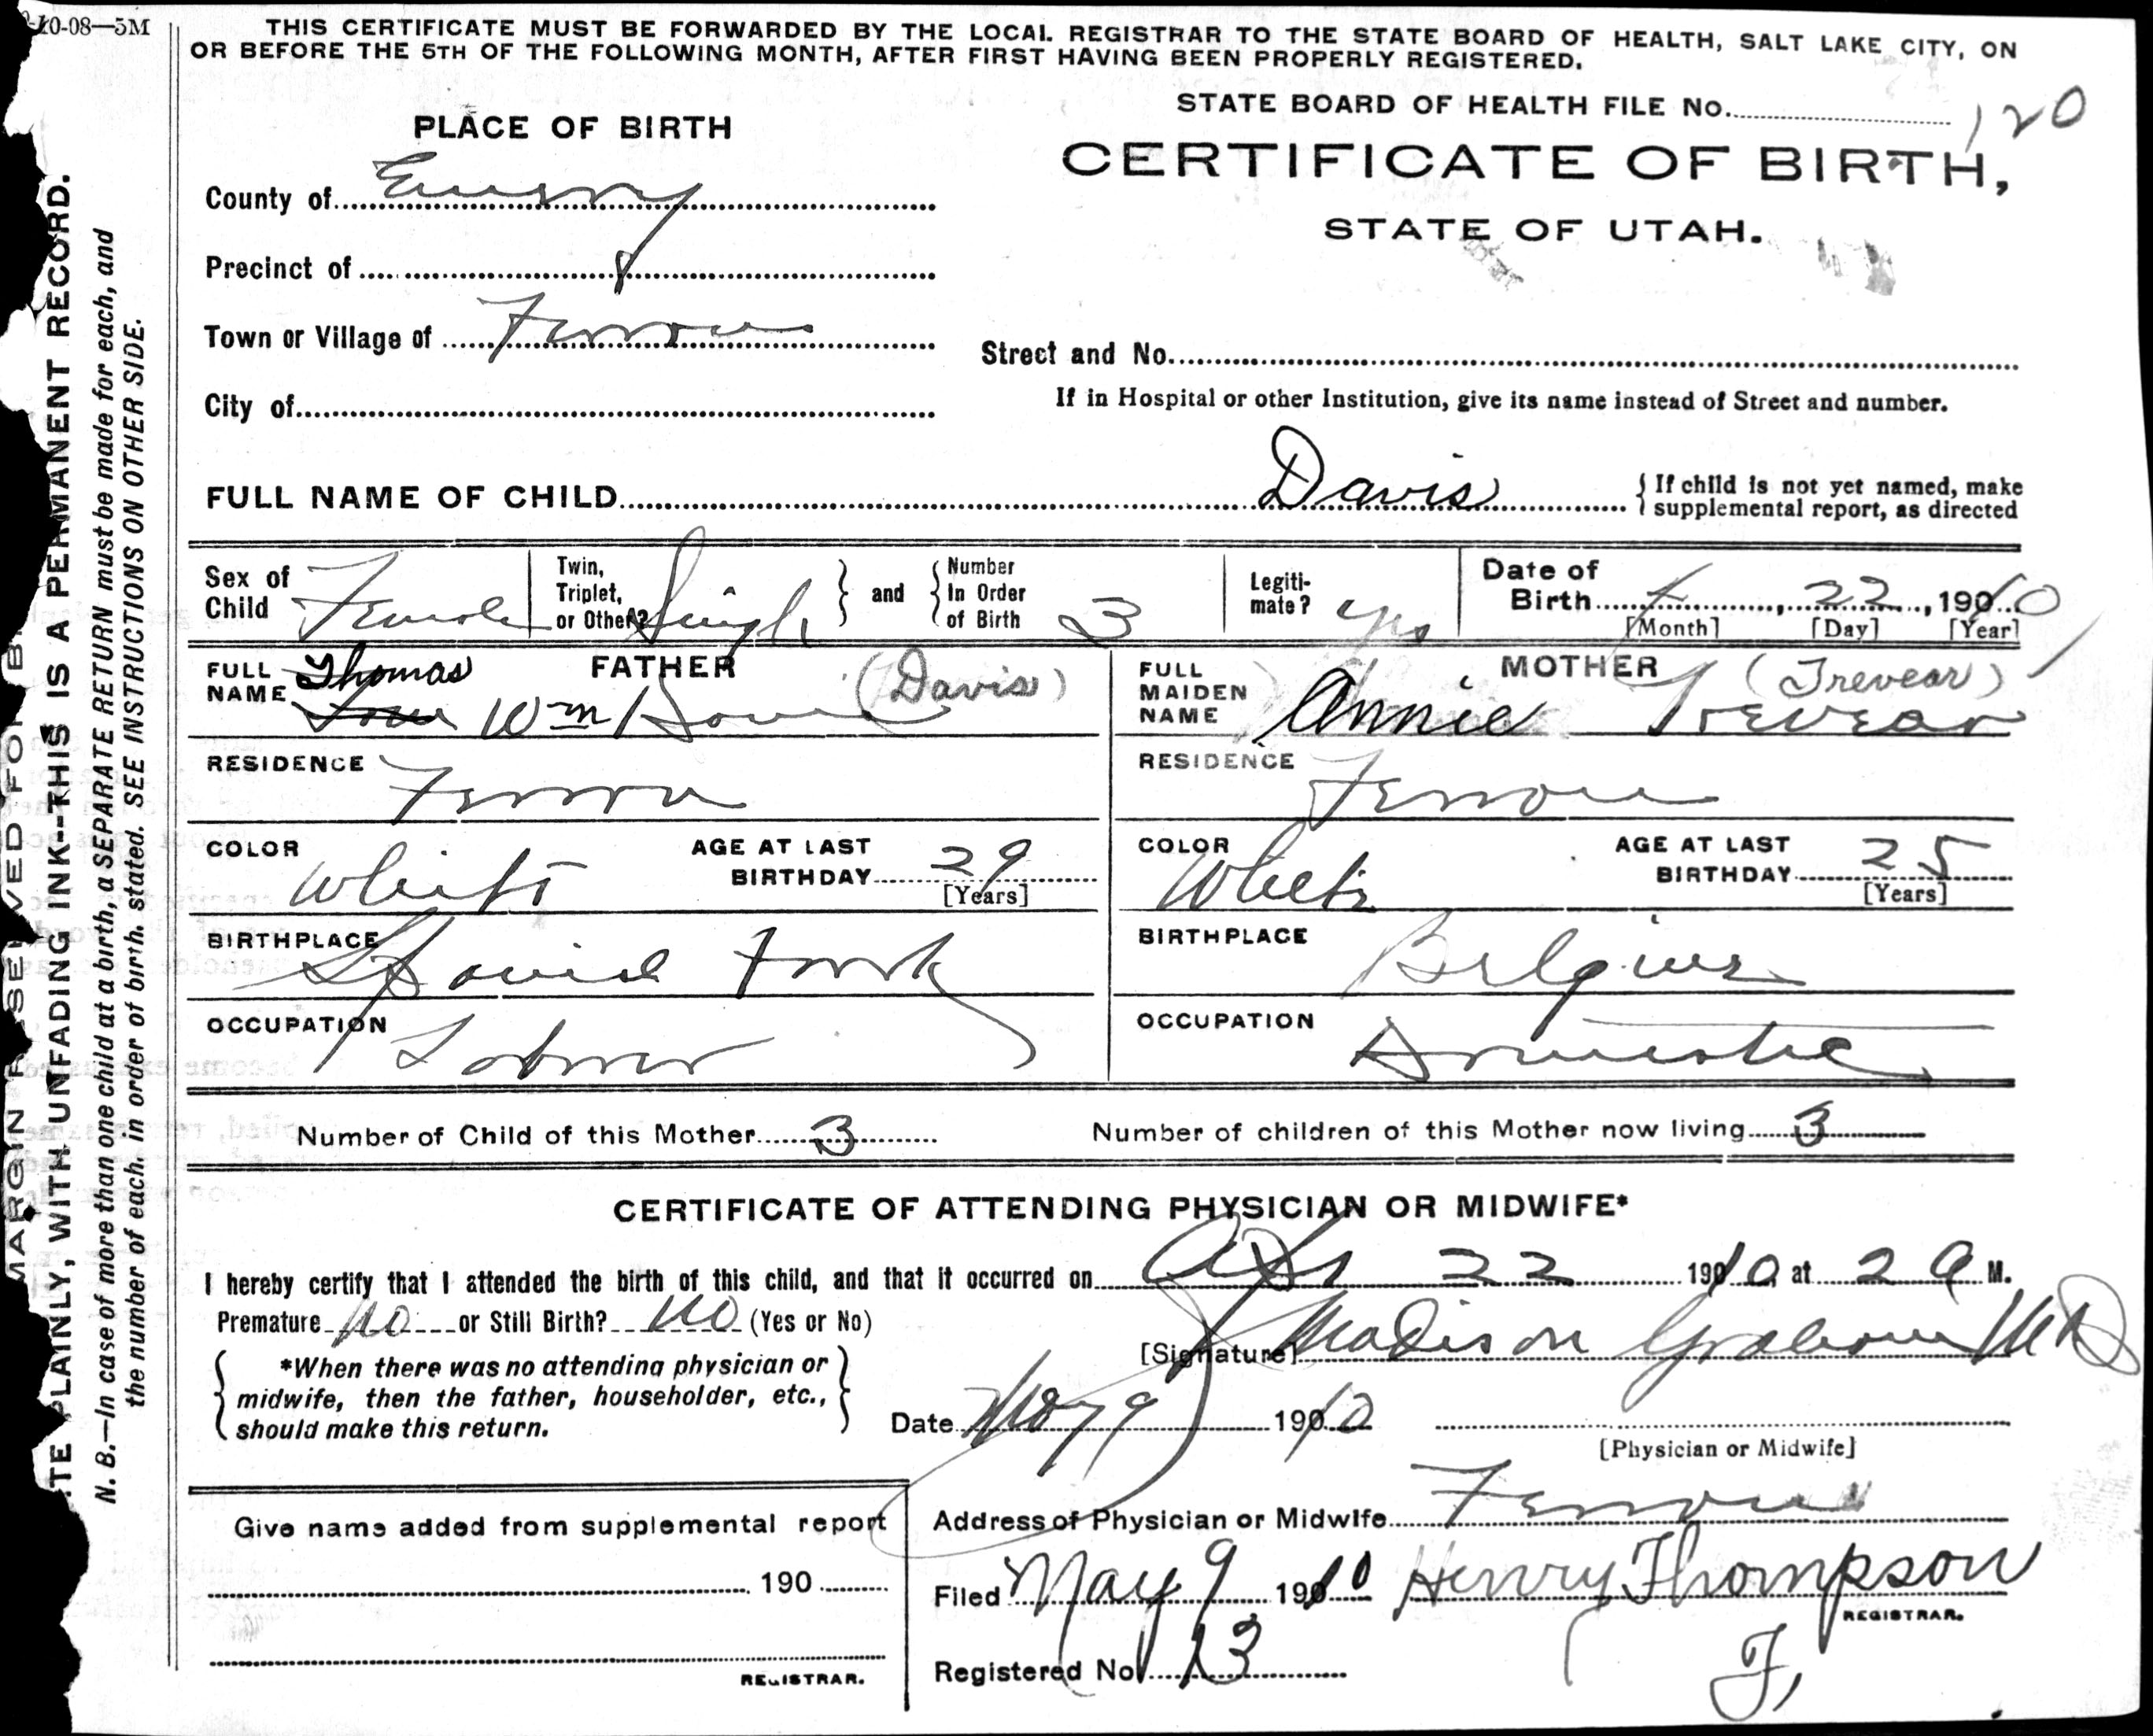 10-08—5M
THIS CERTIFICATE MUST BE FORWARDED BY THE LOCAL REGISTRAR TO THE STATE BOARD OF HEALTH, SALT LAKE CITY, ON
OR BEFORE THE 5TH OF THE FOLLOWING MONTH, AFTER FIRST HAVING BEEN PROPERLY REGISTERED.
STATE BOARD OF HEALTH FILE No. 120
PLACE OF BIRTH
CERTIFICATE OF BIRTH,
STATE OF UTAH.
County of Emery
Precinct of
Town or Village of Ferron
Street and No.
City of
If in Hospital or other Institution, give its name instead of Street and number.
FULL NAME OF CHILD Davis
If child is not yet named, make
supplemental report, as directed
Sex of Child Female
Twin, Triplet, or Other? Single
and
Number In Order of Birth 3
Legiti-mate? Yes
Date of Birth 4, 22, 1910
[Month] [Day] [Year]
FATHER
FULL NAME Thomas Wm Davis (Davis)
MOTHER
FULL MAIDEN NAME Annie Trevear (Trevear)
RESIDENCE Ferron
RESIDENCE Ferron
COLOR White
AGE AT LAST BIRTHDAY 29
[Years]
COLOR White
AGE AT LAST BIRTHDAY 25
[Years]
BIRTHPLACE Spanish Fork
BIRTHPLACE Belgium
OCCUPATION Laborer
OCCUPATION Domestic
Number of Child of this Mother 3
Number of children of this Mother now living 3
CERTIFICATE OF ATTENDING PHYSICIAN OR MIDWIFE*
I hereby certify that I attended the birth of this child, and that it occurred on Apr 22 1910, at 2 a M.
Premature no or Still Birth? no (Yes or No)
[Signature] Madison Graham MD
*When there was no attending physician or
midwife, then the father, householder, etc.,
should make this return.
Date May 9 1910
[Physician or Midwife]
Give name added from supplemental report
Address of Physician or Midwife Ferron
190
Filed May 9 1910 Henry Thompson
REGISTRAR.
REGISTRAR.
Registered No. 13
F,
MARGIN RESERVED FOR
TE PLAINLY, WITH UNFADING INK--THIS IS A PERMANENT RECORD.
N. B.—In case of more than one child at a birth, a SEPARATE RETURN must be made for each, and
the number of each, in order of birth, stated. SEE INSTRUCTIONS ON OTHER SIDE.